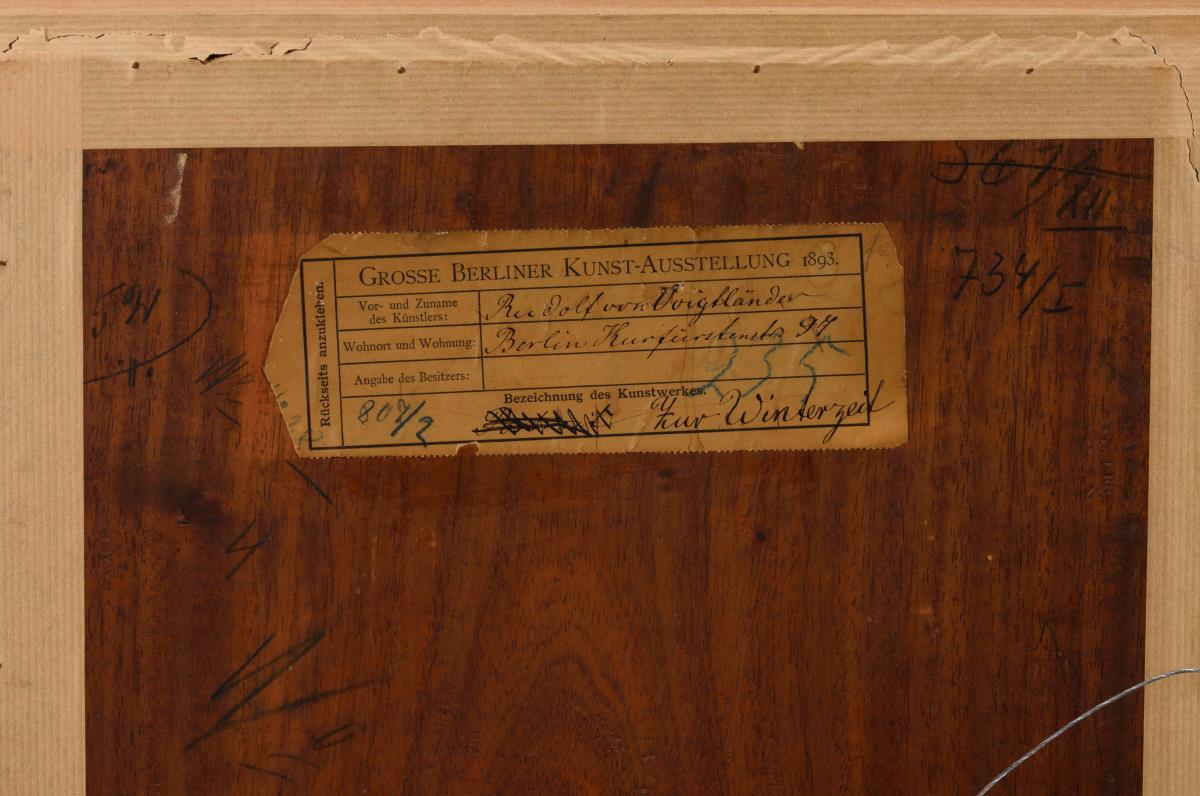 GROSSE BERLINER KUNST-AUSSTELLUNG 1893.
Rückseits anzukleben.
Vor- und Zuname des Künstlers: Rudolf von Voigtländer
Wohnort und Wohnung: Berlin Kurfürstenstr 97
Angabe des Besitzers:
235
Bezeichnung des Kunstwerkes.
807/2 Zur Winterzeit
734/I